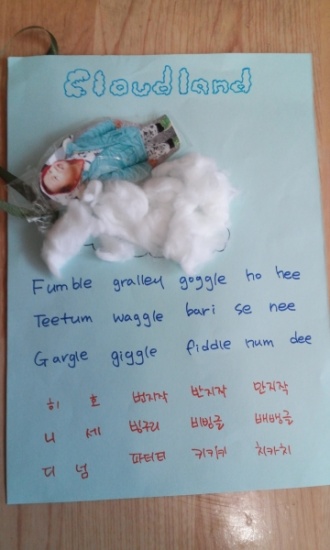 Cloudland
Fumble gralley goggle ho hee
Teetum waggle bari se nee
Gargle giggle fiddle num dee
히 호 번지작 반지작 만지작
니 세 빙구리 비빙글 배뱅글
디 넘 파터티 키키키 치카치